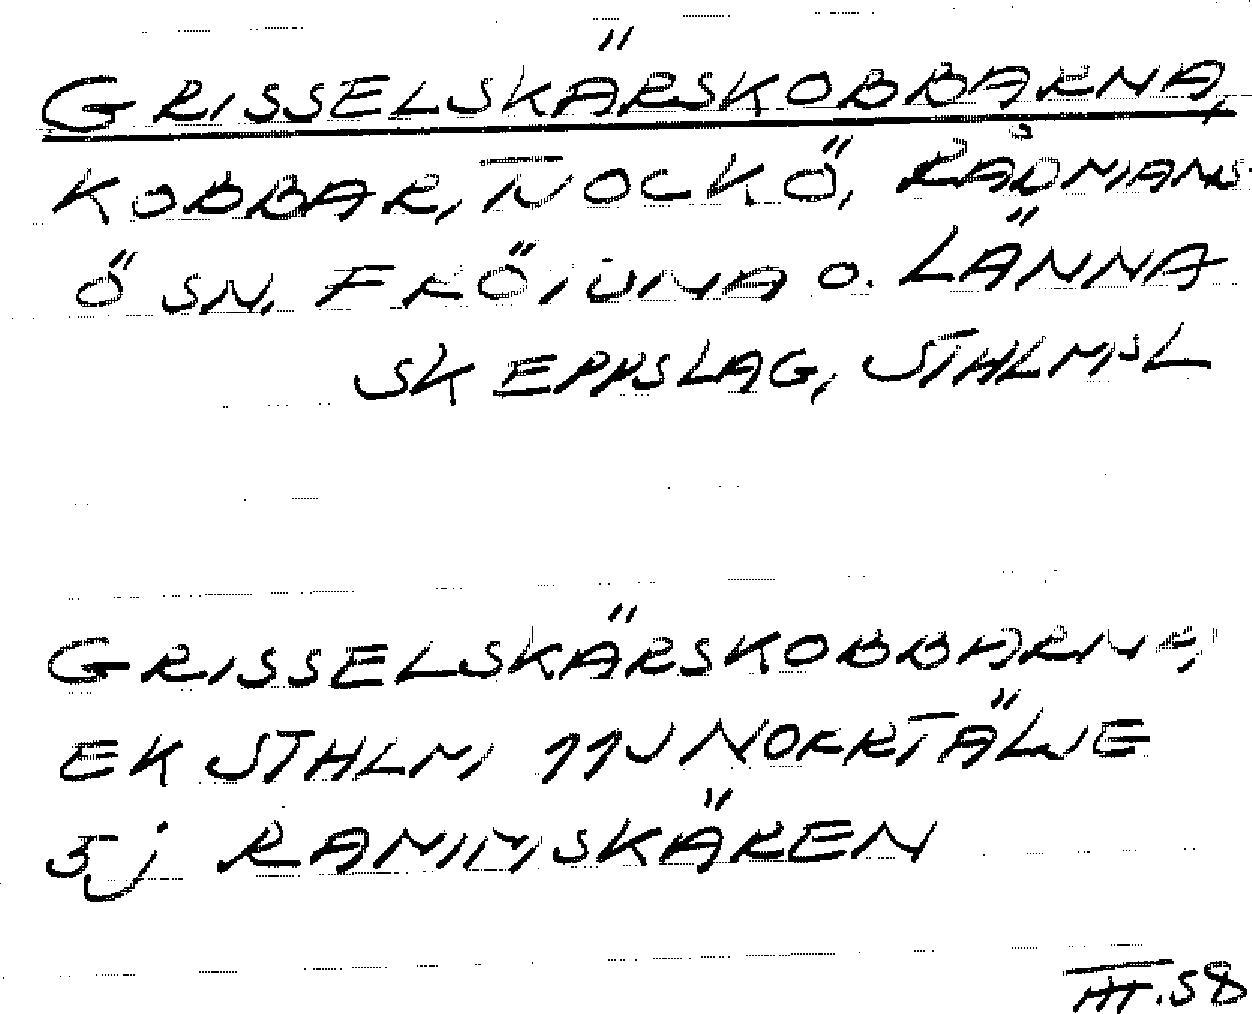 GRISSELSKÄRSKOBBARNA,
KOBBAR, NOCKÖ, RÅDMANS-
Ö SN. FRÖTUNA O. LÄNNA
SKEPPSLAG, STHLMSL
GRISSELSKÄRSKOBBARNA,
EK STHLM, 11J NORRTÄLJE
5j RAMMSKÄREN
III.58